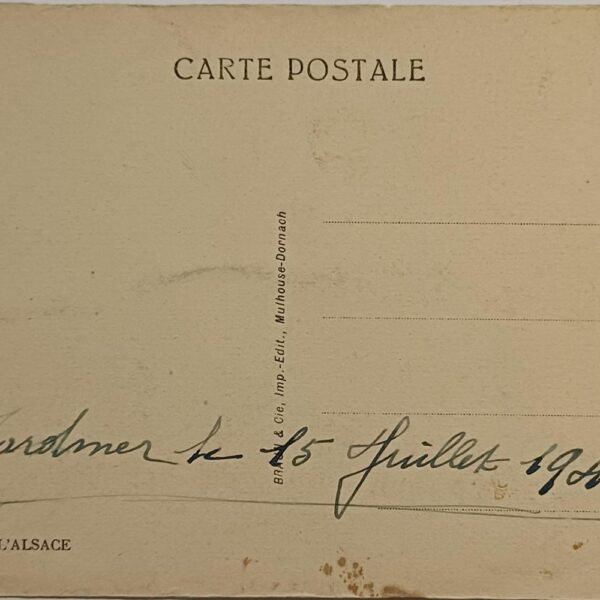 CARTE POSTALE
BRAUN & Cie, Imp.-Edit., Mulhouse-Dornach
ardmer le 15 Juillet 19
L'ALSACE